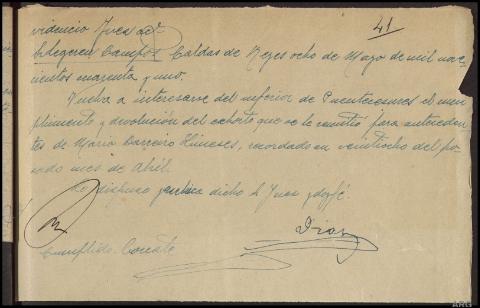 41
videncia Juez acl
Melgerem Campos Caldas de Reyes ocho de Mayo de mil nove-
cientos cuarenta y uno.
Vuelva a interesarse del inferior de Puentecesures el cum-
plimiento y devolución del exhorto que se le remitió para anteceden-
tes de Mario Barreiro Himeses, recordado en veintiocho del pa-
sado mes de Abril.
Lo dispuso y rubrica dicho Sr Juez y doy fé.
Diaz
Cumplido. Conste
ARG